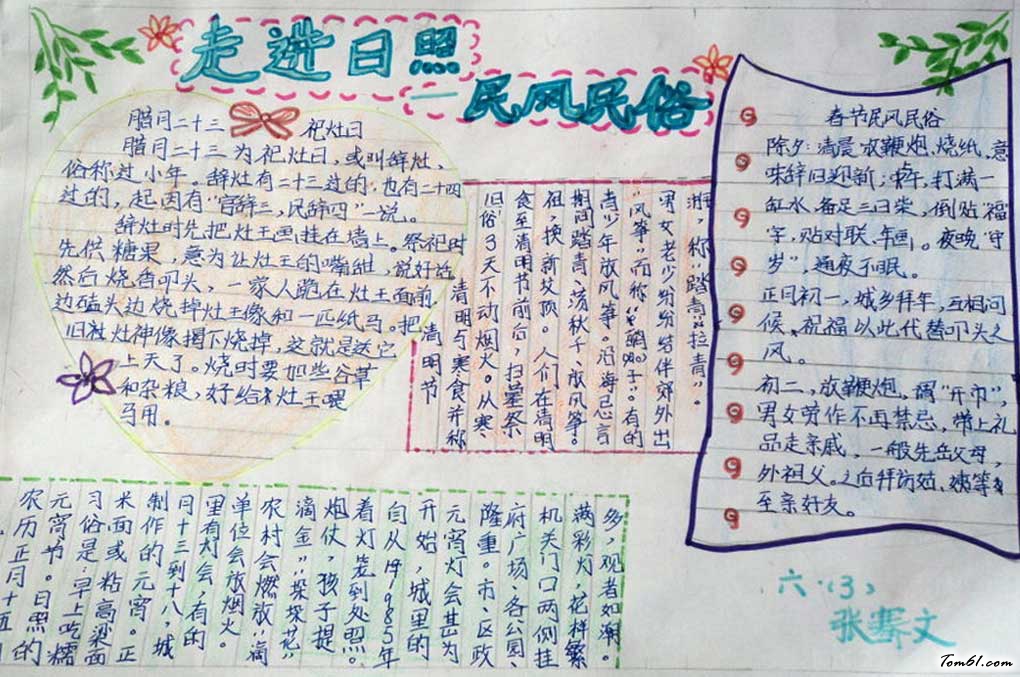 走进日照
—民风民俗
腊月二十三 祀灶日
腊月二十三为祀灶日，或叫辞灶，
俗称过小年。辞灶有二十三过的，也有二十四
过的，起因有“官辞三，民辞四”一说。
辞灶时先把灶王画挂在墙上。祭祀时
先供糖果，意为让灶王的嘴甜，说好话
然后烧香叩头，一家人跪在灶王面前
边磕头边烧掉灶王像和一匹纸马。把
旧社灶神像揭下烧掉，这就是送它
上天了。烧时要加些谷草
和杂粮，好给灶王喂
马用。
清明节
清明与寒食并称
旧俗3天不动烟火。从寒
食至清明节前后，扫墓祭
祖，换新坟顶。人们在清明
期间踏青、荡秋千、放风筝。
青少年放风筝。沿海忌言
“风筝”而称“鹞子”。有的
男女老少纷纷结伴郊外出
游，称“踏青”“拉青”。
春节民风民俗
除夕：清晨放鞭炮、烧纸，意
味辞旧迎新；中午，打满一
缸水、备足三日柴，倒贴“福”
字，贴对联、年画。夜晚“守
岁”，通夜不眠。
正月初一，城乡拜年，互相问
候、祝福以此代替叩头之
风。
初二，放鞭炮，谓“开市”，
男女劳作不再禁忌，带上礼
品走亲戚，一般先岳父母，
外祖父。之后拜访姑、姨等
至亲好友。
农历正月十五
元宵节。日照的
习俗是：早上吃糯
米面或粘高粱面
制作的元宵。正
月十三到十八，城
里有灯会，有的
单位会放烟火。
农村会燃放“滴
滴金”“朵朵花”
烟仗，孩子提
着灯笼到处照。
自从1985年
开始，城里的
元宵灯会甚为
隆重。市、区政
府广场、各公园、
机关门口两侧挂
满彩灯，花样繁
多，观者如潮。
六·(3)
张骞文
Tom61.com